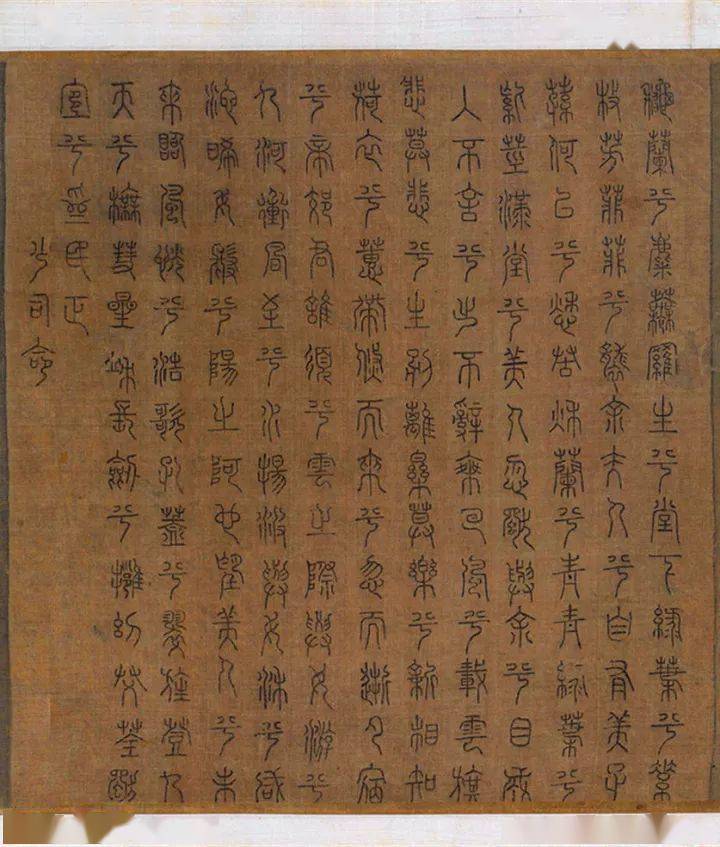 秋蘭兮麋蕪羅生兮堂下綠葉兮素
枝芳菲菲兮襲余夫人兮自有美子
蓀何以兮愁苦秋蘭兮青青綠葉兮
紫莖滿堂兮美人忽獨與余兮目成
入不言兮出不辭乘回風兮載雲旗
悲莫悲兮生別離樂莫樂兮新相知
荷衣兮蕙帶倏而來兮忽而逝夕宿
兮帝郊君誰須兮雲之際與女游兮
九河衝風至兮水揚波與女沐兮咸
池晞女髮兮陽之阿望美人兮未
來臨風怳兮浩歌孔蓋兮翠旌登九
天兮撫彗星竦長劍兮擁幼艾荃獨
宜兮為民正
少司命